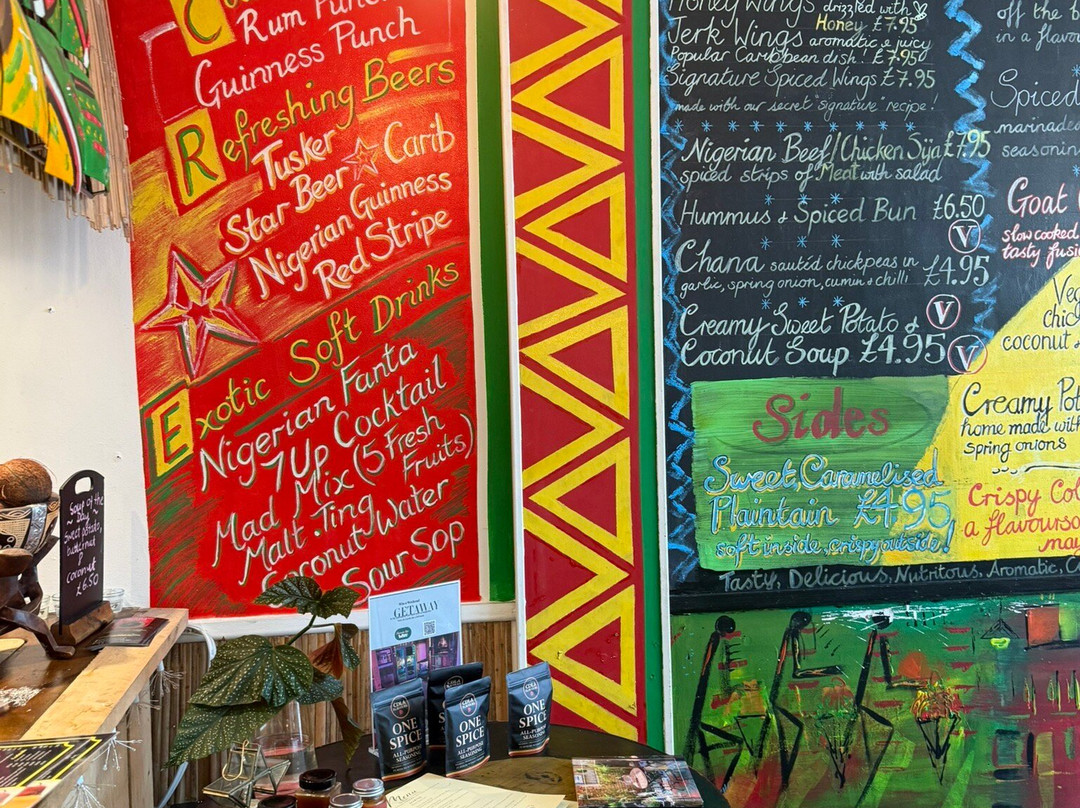 C
Rum Punch
Guinness Punch
Refreshing Beers
Tusker
Star Beer Carib
Nigerian Guinness
Red Stripe
Exotic Soft Drinks
Nigerian Fanta
7Up Cocktail
Mad Mix (5 Fresh
Fruits)
Malt . Ting
Coconut Water
Sour Sop
Soup of the
Day
Sweet potato,
butternut
&
coconut
£6.50
GETAWAY
CDLA
ONE
SPICE
ALL-PURPOSE
SEASONING
ONE
SPICE
ALL-PURPOSE
SEASONING
ONE
SPICE
ALL-PURPOSE
SEASONING
Menu
Honey Wings drizzled with
Honey £7.95
Jerk Wings aromatic & juicy
Popular Caribbean dish! £7.95
Signature Spiced Wings £7.95
made with our secret "signature" recipe!
Nigerian Beef/Chicken Sija £7.95
spiced strips of Meat with salad
Hummus & Spiced Bun £6.50
V
Chana sautéd chickpeas in
garlic, spring onion, cumin & chilli £4.95
V
Creamy Sweet Potato &
Coconut Soup £4.95 V
Sides
Sweet, Caramelised
Plaintain £4.95
soft inside, crispy outside!
Tasty, Delicious, Nutritous, Aromatic,
off the b
in a flavou
Spiced
marinade
seasonin
Goat
slow cooked
tasty fusi
Veg
chic
coconut
Creamy Pot
home made with
spring onions
Crispy Col
a flavourso
may